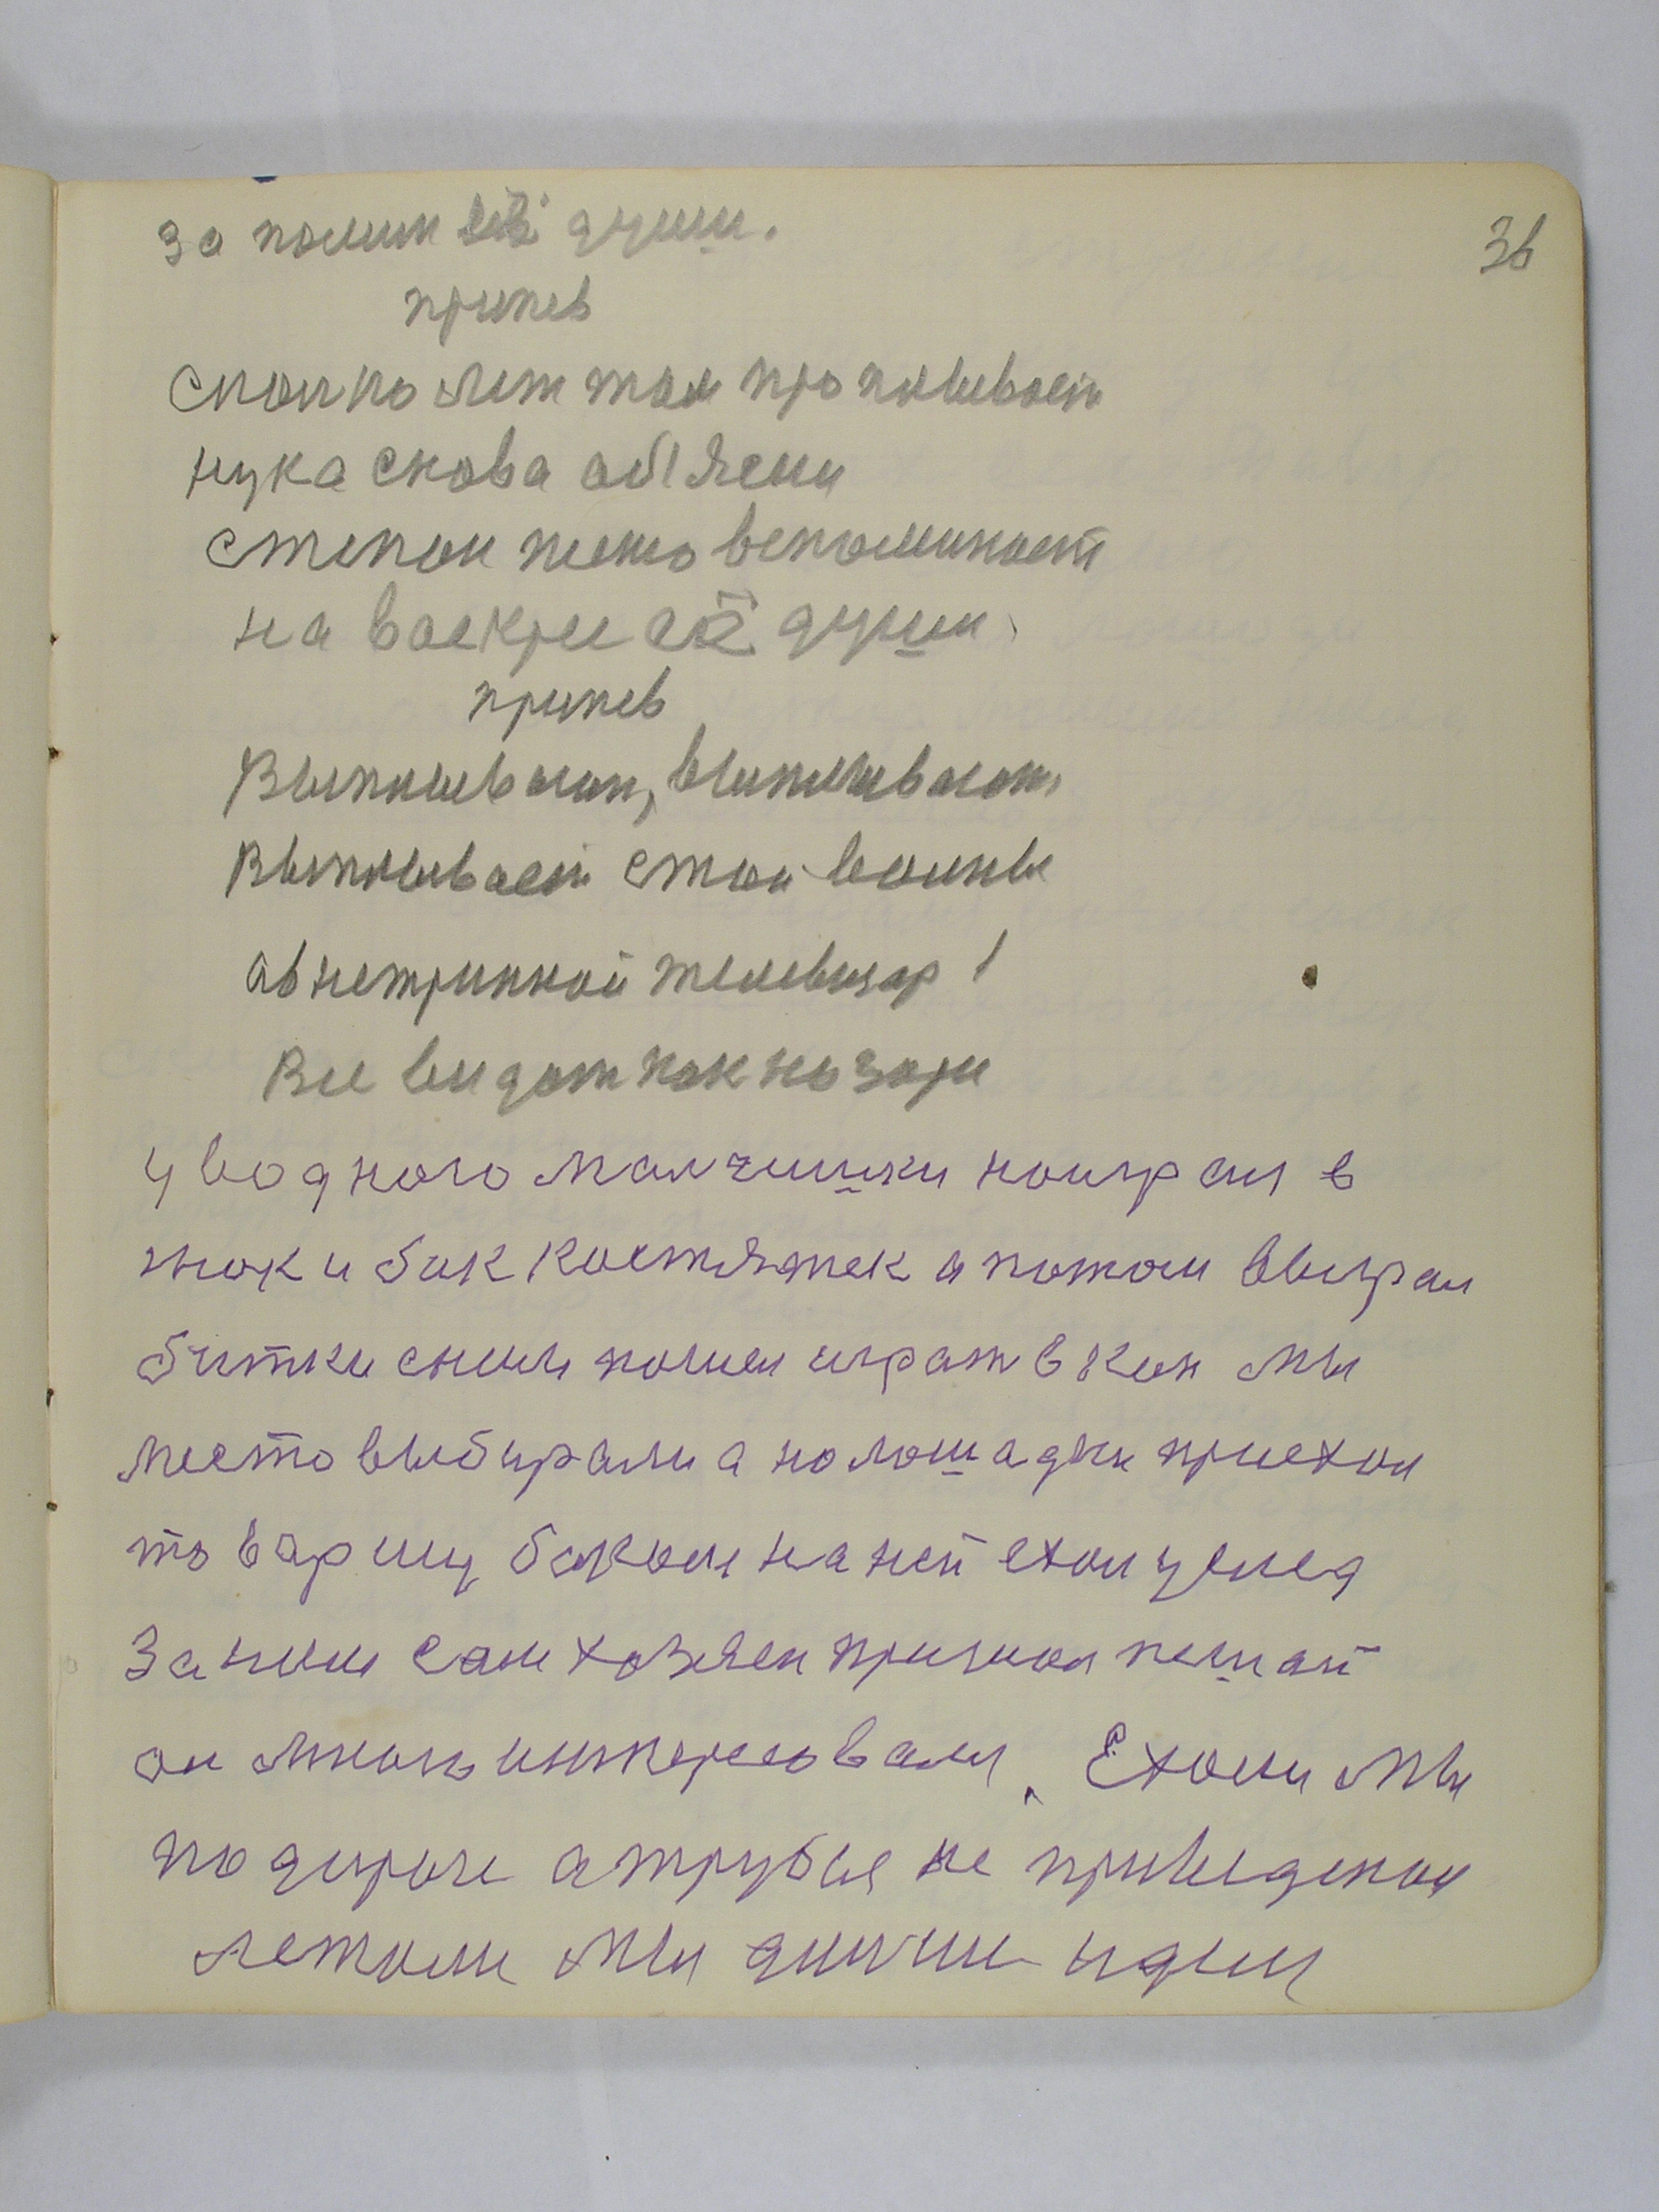 за помни все души.
36
припев
сколко лет там проплывает
нука снова абьясни
степан песню вспоминает
на васкресе души.
припев
Выплывают, выплывают,
Выплывает стой волны
авнетринной телевизар!
Все видат как на заре
у водного малчишки наиграл в
жок и бак костяжек а потом выграл
битки сними пошел играт в кон мы
место выбирали а на лошадки приехал
товарищ баком на ней ехал услед
за ним сам хозяен пришол пешай
он много интересовалы. Ехали мы
по дороге а трубы не приведеная
летом мы дичи идем